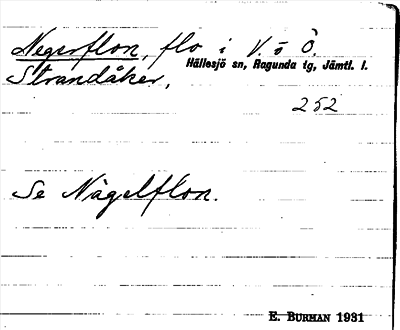 Negerflon, flo i V. o Ö.
Hällesjö sn, Ragunda tg, Jämtl. l.
Strandåker,
252
Se Någelflon.
E. BURMAN 1931